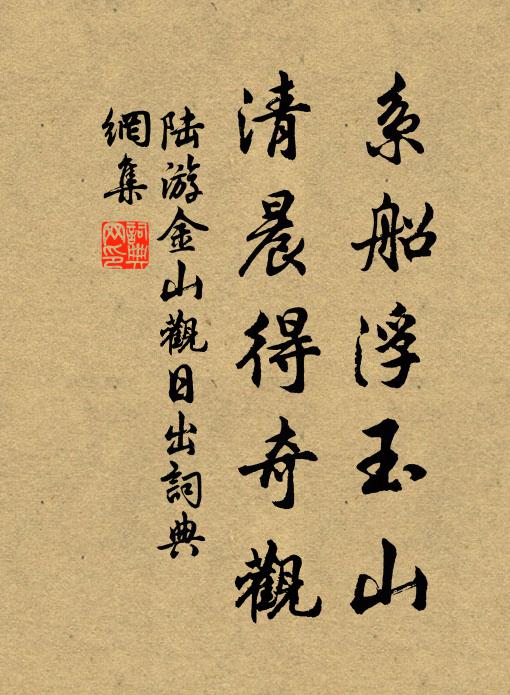 系船浮玉山
清晨得奇觀
陆游金山觀日出詞典
網集
詞典
网印